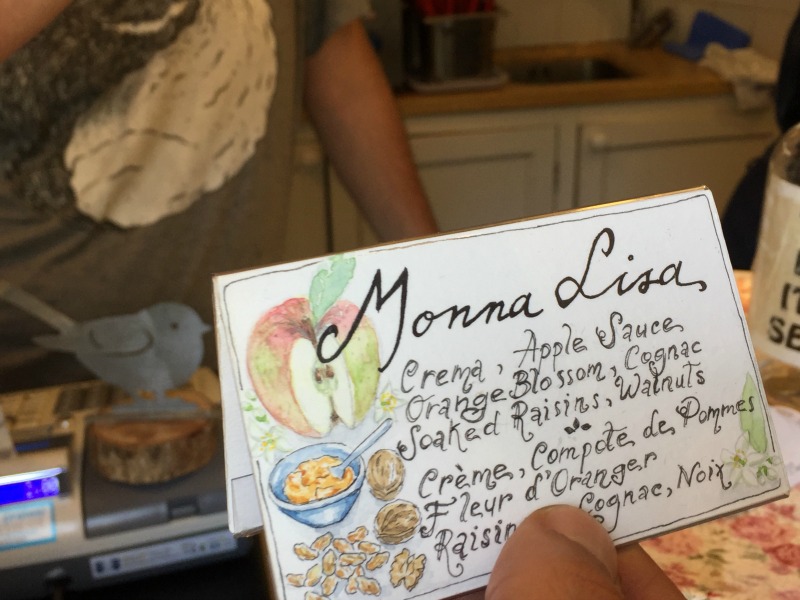 Monna Lisa
Crema, Apple Sauce
Orange Blossom, Cognac
Soaked Raisins, Walnuts
Crème, Compote de Pommes
Fleur d'Oranger
Raisin Cognac, Noix